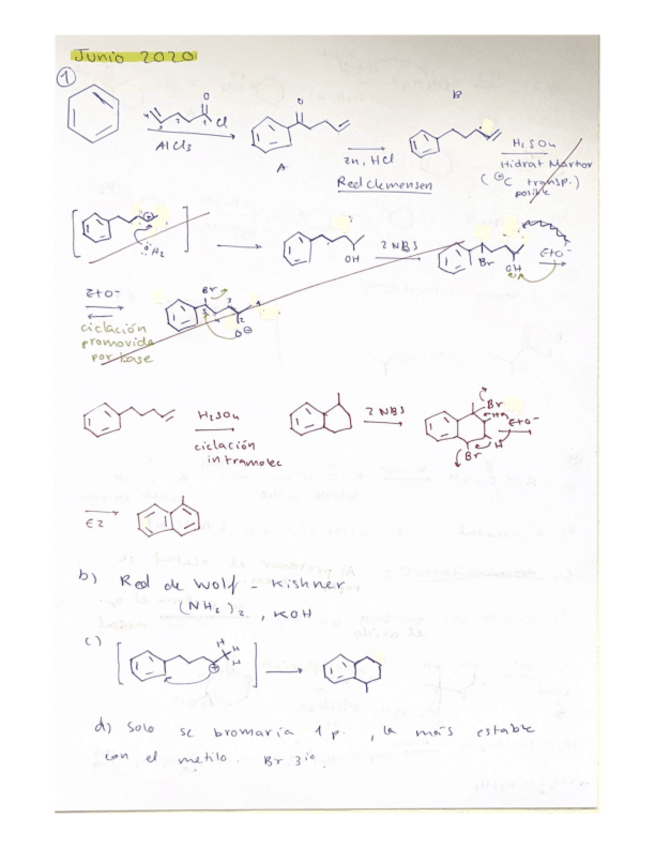 Junio 2020
1
O
4 3 2 1 Cl
AlCl3
O
A
Zn, HCl
Red Clemensen
B
H2SO4
Hidrat Markov
(⊕C transp.)
posible
H2
OH
2 NBS
Br
OH
EtO-
EtO-
ciclación
promovida
por base
Br
O⊖
H2SO4
ciclación
intramolec
2 NBS
Br
H
Br
EtO-
E2
b) Red de Wolf - Kishner
(NH2)2, KOH
c)
H
H
H
⊕
d) Solo se bromaría 1 p., la más estable
con el metilo. Br 3ia.